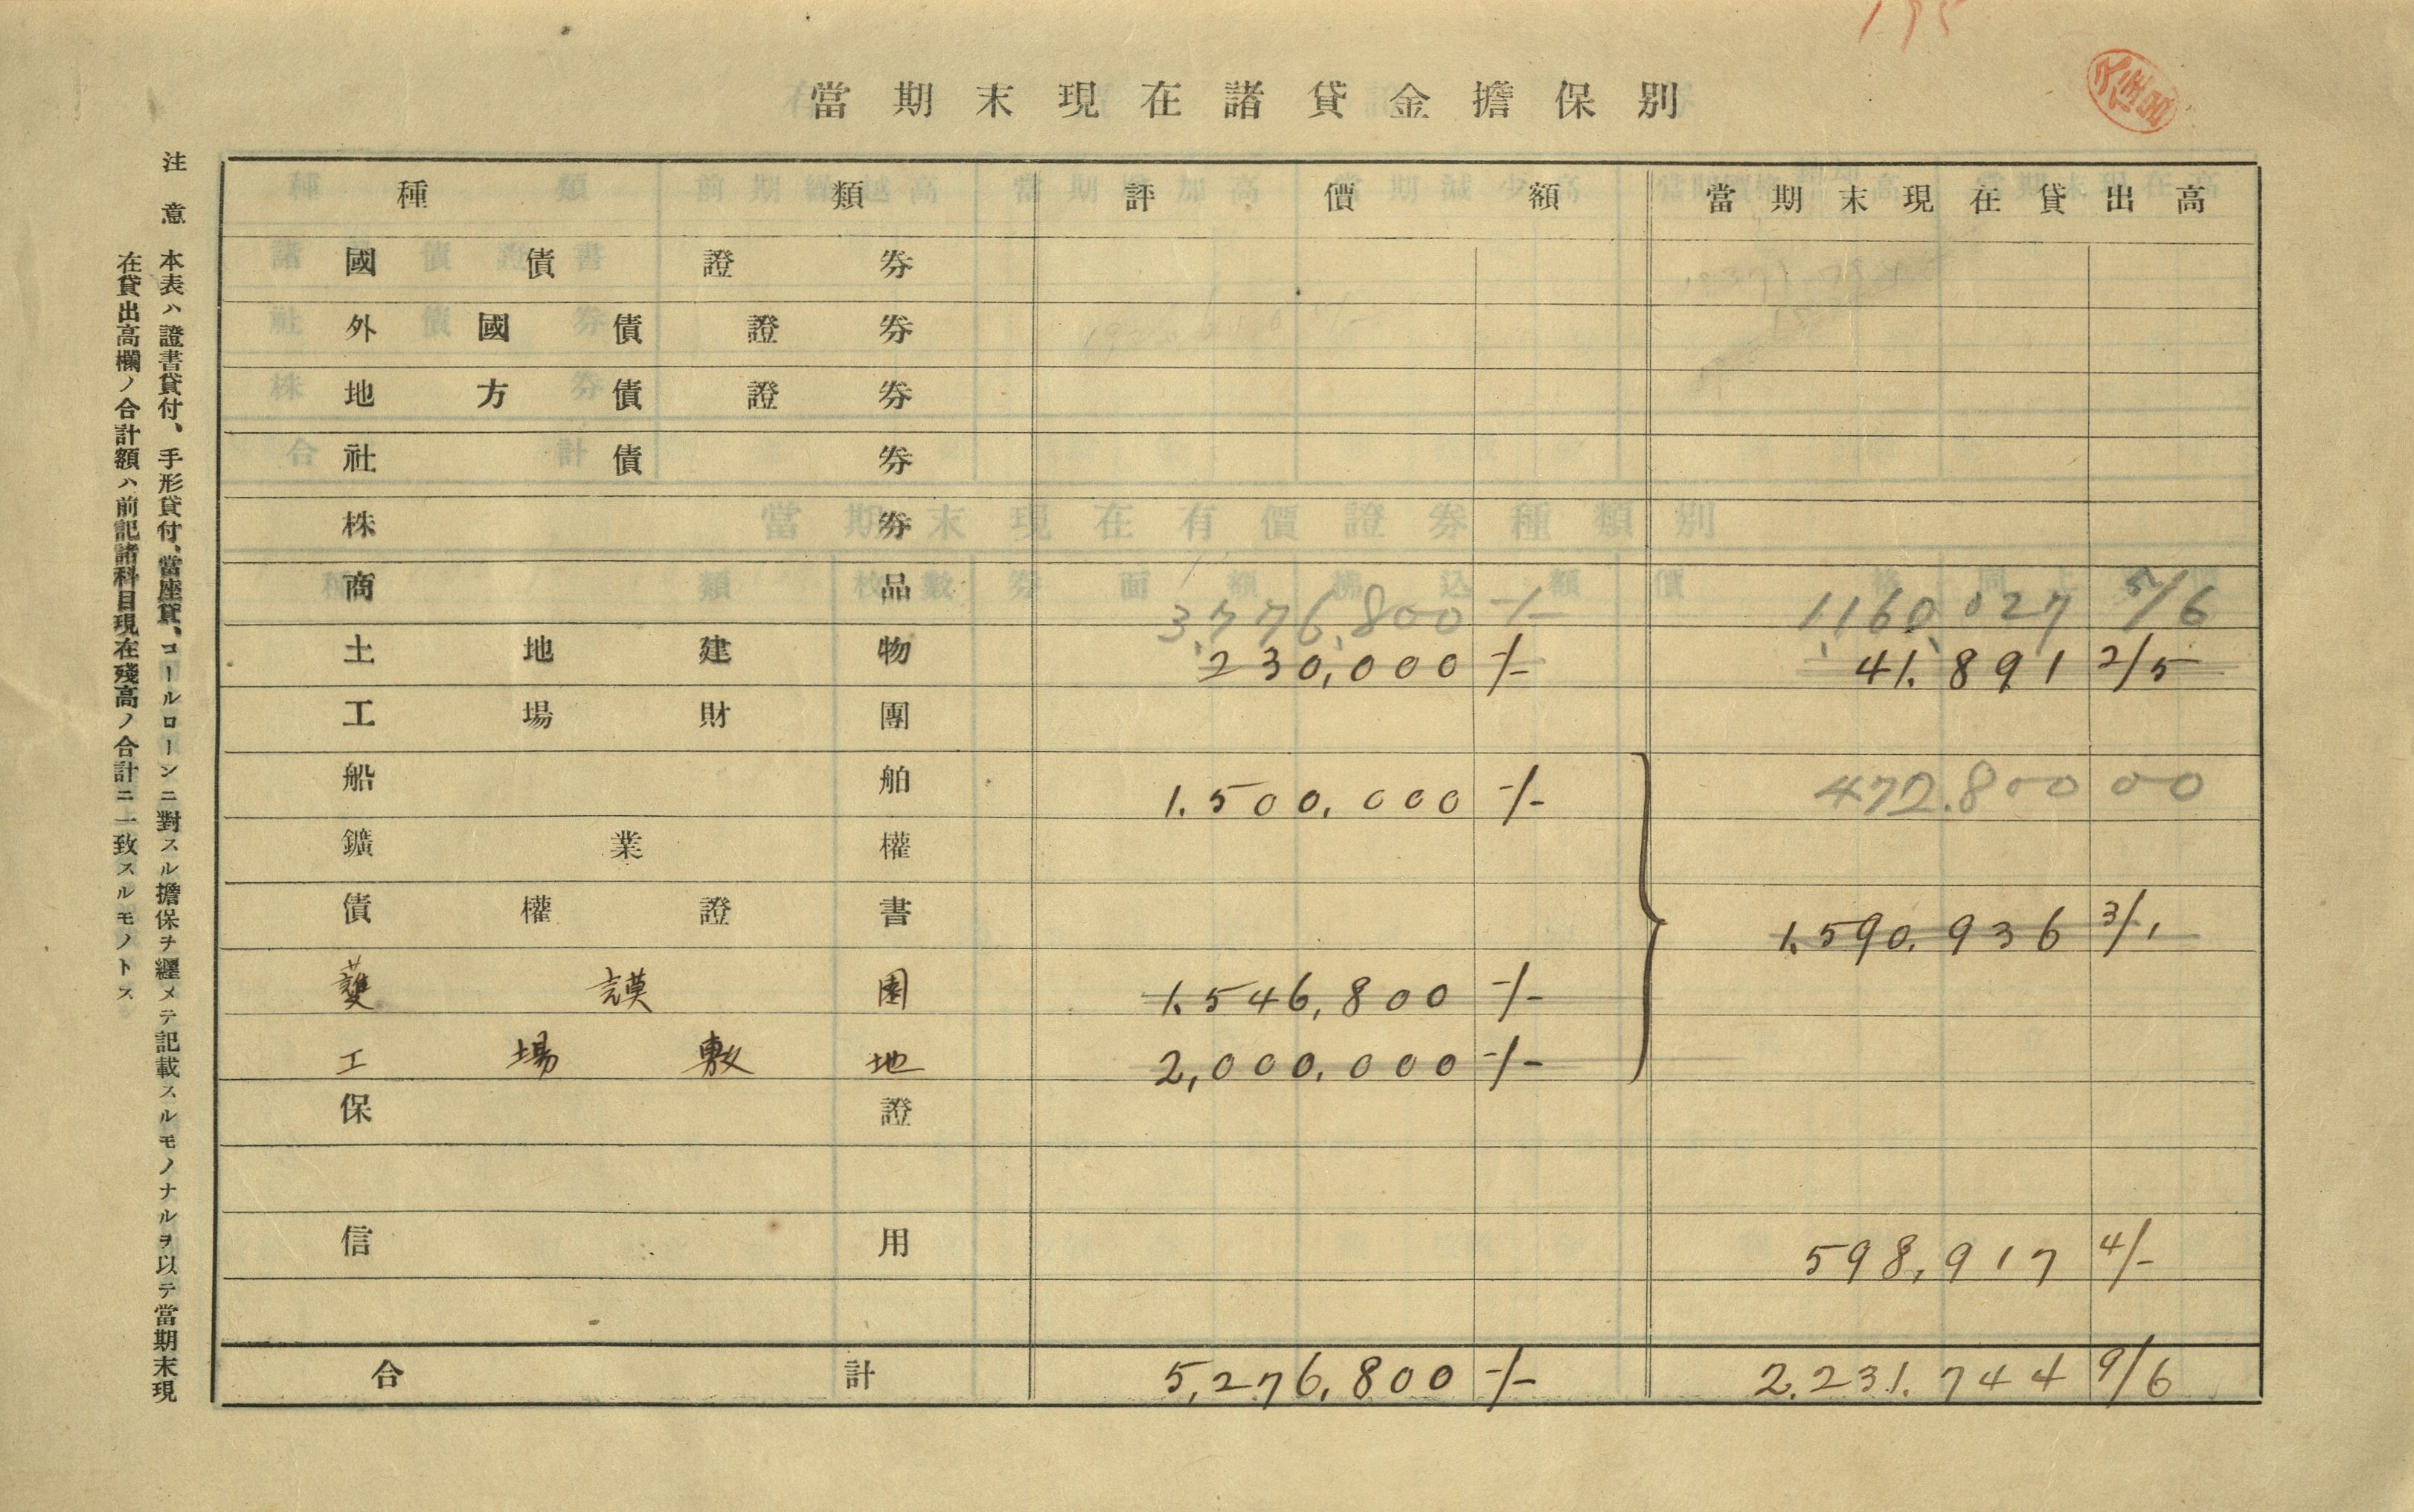 195
當期末現在諸貸金擔保別
種類 評價額 當期末現在貸出高
國債證券
外國債證券
地方債證券
社債券
株券
商品
3,776,800 -/- 1,160,027 5/6
土地建物 230,000 -/- 41.891 2/5
工場財團
船舶 1.500,000 -/- 472.800 00
鑛業權
債權證書 1.590.936 3/1
護謨園 1.546,800 -/-
工場敷地 2,000,000 -/-
保證
信用 598,917 4/-
合計 5,276,800 -/- 2.231.744 9/6
注意 本表ハ證書貸付、手形貸付、當座貸、コールローンニ對スル擔保ヲ纒メテ記載スルモノナルヲ以テ當期末現
在貸出高欄ノ合計額ハ前記諸科目現在殘高ノ合計ニ一致スルモノトス